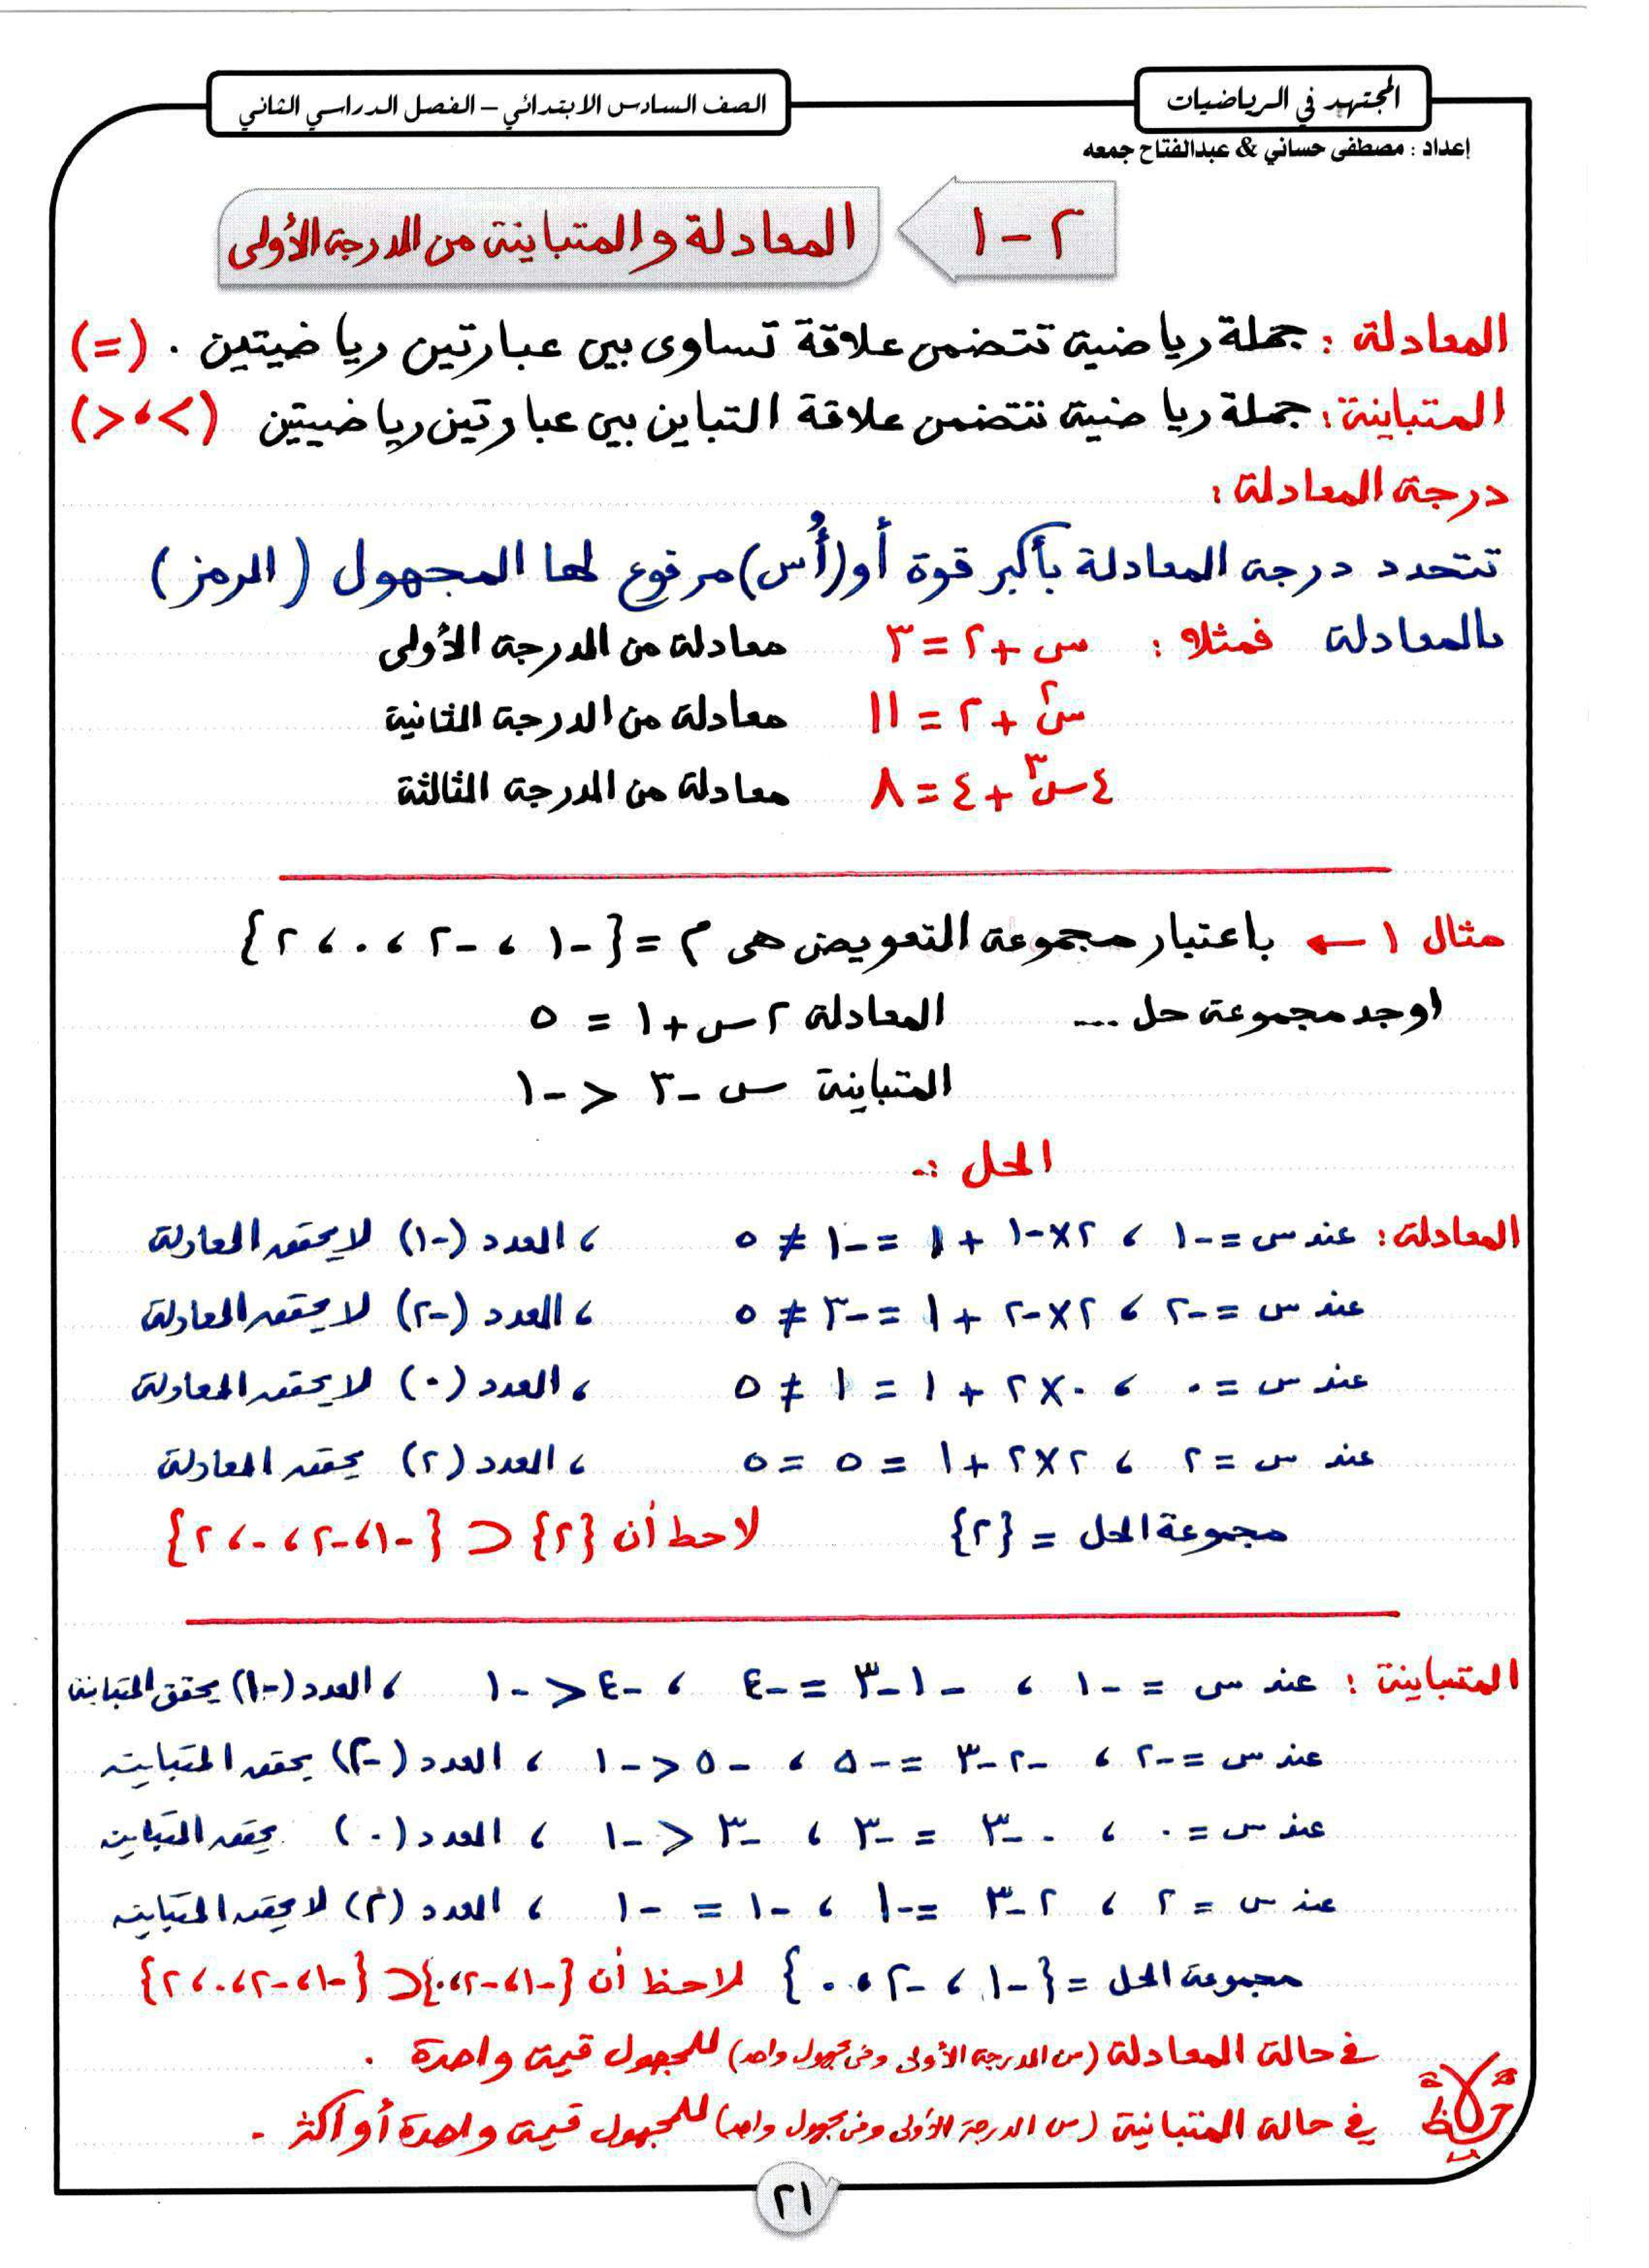 المجتهد في الرياضيات
الصف السادس الابتدائي – الفصل الدراسي الثاني
إعداد : مصطفى حساني & عبدالفتاح جمعه
٢ - ١
المعادلة والمتباينة من الدرجة الأولى
المعادلة : جملة رياضية تتضمن علاقة تساوى بين عبارتين رياضيتين . (=)
المتباينة : جملة رياضية تتضمن علاقة التباين بين عبارتين رياضيتين (< ، >)
درجة المعادلة :
تتحدد درجة المعادلة بأكبر قوة أو (أُس) مرفوع لها المجهول (الرمز)
بالمعادلة فمثلاً : س + ٢ = ٣ معادلة من الدرجة الأولى
س٢ + ٢ = ١١ معادلة من الدرجة الثانية
٤س٣ + ٤ = ٨ معادلة من الدرجة الثالثة
مثال ١ ← باعتبار مجموعة التعويض هى م = {-١ ، -٢ ، ٠ ، ٢}
اوجد مجموعة حل ... المعادلة ٢س + ١ = ٥
المتباينة س - ٣ < -١
الحل :-
المعادلة : عند س = -١ ، ٢×-١ + ١ = -١ ≠ ٥ ، العدد (-١) لا يحقق المعادلة
عند س = -٢ ، ٢×-٢ + ١ = -٣ ≠ ٥ ، العدد (-٢) لا يحقق المعادلة
عند س = ٠ ، ٠×٢ + ١ = ١ ≠ ٥ ، العدد (٠) لا يحقق المعادلة
عند س = ٢ ، ٢×٢ + ١ = ٥ = ٥ ، العدد (٢) يحقق المعادلة
مجموعة الحل = {٢} لاحظ أن {٢} ⊂ {-١ ، -٢ ، ٠ ، ٢}
المتباينة : عند س = -١ ، -١-٣ = -٤ ، -٤ < -١ ، العدد (-١) يحقق المتباينة
عند س = -٢ ، -٢-٣ = -٥ ، -٥ < -١ ، العدد (-٢) يحقق المتباينة
عند س = ٠ ، ٠-٣ = -٣ ، -٣ < -١ ، العدد (٠) يحقق المتباينة
عند س = ٢ ، ٢-٣ = -١ ، -١ = -١ ، العدد (٢) لا يحقق المتباينة
مجموعة الحل = {-١ ، -٢ ، ٠} لاحظ أن {-١ ، -٢ ، ٠} ⊂ {-١ ، -٢ ، ٠ ، ٢}
في حالة المعادلة (من الدرجة الأولى وفى مجهول واحد) للمجهول قيمة واحدة .
في حالة المتباينة (من الدرجة الأولى وفى مجهول واحد) للمجهول قيمة واحدة أو أكثر .
٢١